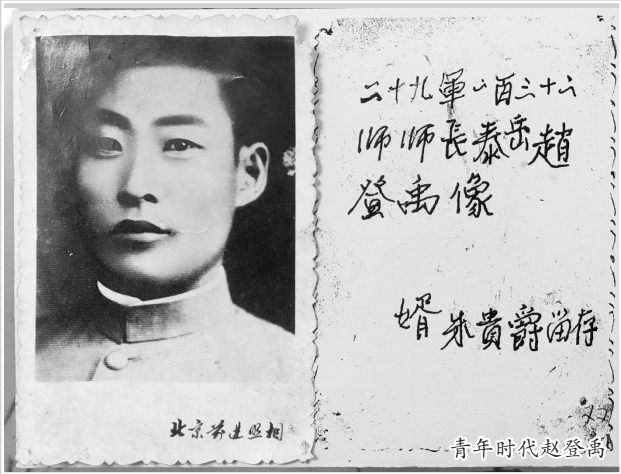 二十九軍一百三十二
师师長泰岳趙
登禹像
婿朱貴爵留存
北京 進照相
青年时代赵登禹